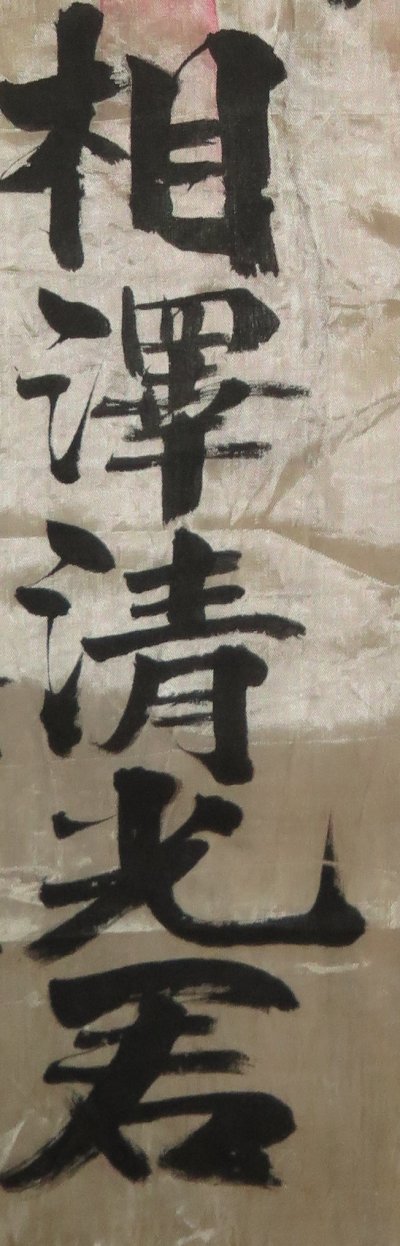 相澤清光君